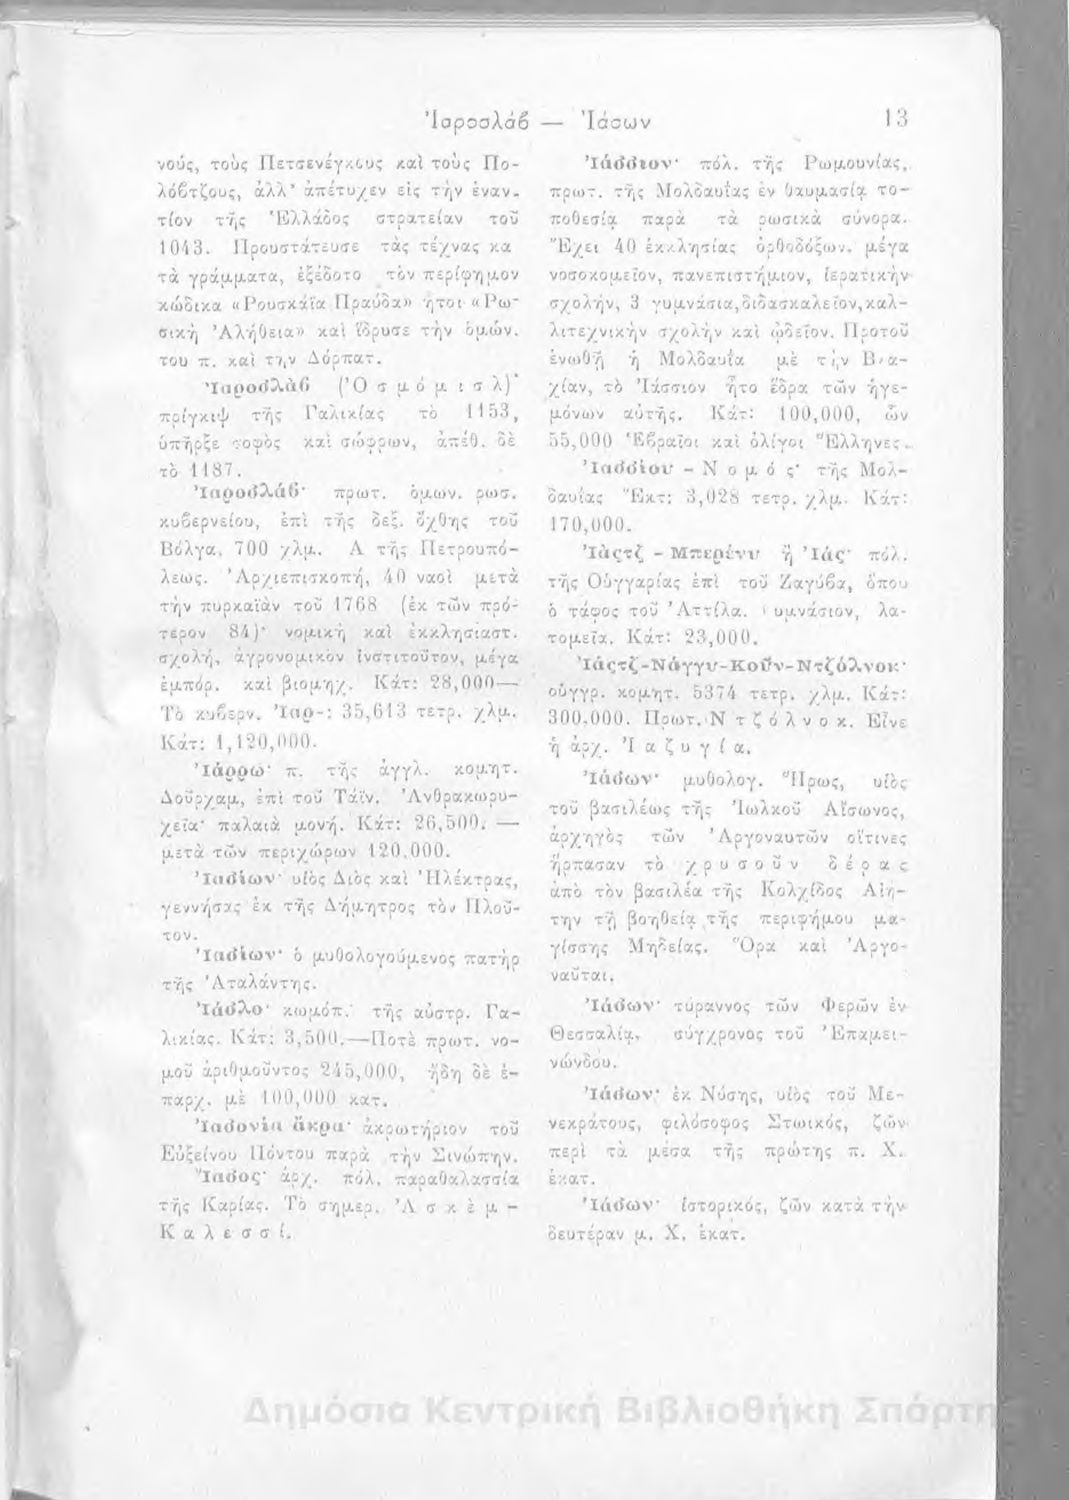 Ἰαροσλάβ — Ἰάσων 13
νούς, τοὺς Πετσενέγκους καὶ τοὺς Πο-
λόβτζους, ἀλλ' ἀπέτυχεν εἰς τὴν ἐναν-
τίον τῆς Ἑλλάδος στρατείαν τοῦ
1043. Προυστάτευσε τὰς τέχνας κα
τὰ γράμματα, ἐξέδοτο τὸν περίφημον
κώδικα «Ρουσκάϊα Πραύδα» ἤτοι «Ρω-
σικὴ Ἀλήθεια» καὶ ἵδρυσε τὴν ὁμών.
του π. καὶ τὴν Δόρπατ.
Ἰαροσλὰβ (Ὀ σ μ ό μ ι σ λ)·
πρίγκιψ τῆς Γαλικίας τὸ 1153,
ὑπῆρξε σοφὸς καὶ σώφρων, ἀπέθ. δὲ
τὸ 1187.
Ἰαροσλάβ· πρωτ. ὁμων. ρωσ.
κυβερνείου, ἐπὶ τῆς δεξ. ὄχθης τοῦ
Βόλγα, 700 χλμ. Α τῆς Πετρουπό-
λεως. Ἀρχιεπισκοπή, 40 ναοὶ μετὰ
τὴν πυρκαϊὰν τοῦ 1768 (ἐκ τῶν πρό-
τερον 84)· νομικὴ καὶ ἐκκλησιαστ.
σχολή, ἀγρονομικὸν ἰνστιτοῦτον, μέγα
ἐμπόρ. καὶ βιομηχ. Κάτ: 28,000—
Τὸ κυβερν. Ἰαρ-: 35,613 τετρ. χλμ.
Κάτ: 1,120,000.
Ἰάρρω· π. τῆς ἀγγλ. κομητ.
Δούρχαμ, ἐπὶ τοῦ Τάϊν. Ἀνθρακωρυ-
χεῖα· παλαιὰ μονή. Κάτ: 26,500. —
μετὰ τῶν περιχώρων 120,000.
Ἰασίων· υἱὸς Διὸς καὶ Ἠλέκτρας,
γεννήσας ἐκ τῆς Δήμητρος τὸν Πλοῦ-
τον.
Ἰασίων· ὁ μυθολογούμενος πατὴρ
τῆς Ἀταλάντης.
Ἰάσλο· κωμόπ. τῆς αὐστρ. Γα-
λικίας. Κάτ: 3,500.—Ποτὲ πρωτ. νο-
μοῦ ἀριθμοῦντος 245,000, ἤδη δὲ ἐ-
παρχ. μὲ 100,000 κατ.
Ἰασονία ἄκρα· ἀκρωτήριον τοῦ
Εὐξείνου Πόντου παρὰ τὴν Σινώπην.
Ἴασος· ἀρχ. πόλ. παραθαλασσία
τῆς Καρίας. Τὸ σημερ. Ἀ σ κ ὲ μ -
Κ α λ ε σ σ ί.
Ἰάσσιον· πόλ. τῆς Ρωμουνίας,
πρωτ. τῆς Μολδαυΐας ἐν θαυμασίᾳ το-
ποθεσίᾳ παρὰ τὰ ρωσικὰ σύνορα.
Ἔχει 40 ἐκκλησίας ὀρθοδόξων, μέγα
νοσοκομεῖον, πανεπιστήμιον, ἱερατικὴν
σχολήν, 3 γυμνάσια, διδασκαλεῖον, καλ-
λιτεχνικὴν σχολὴν καὶ ᾠδεῖον. Προτοῦ
ἑνωθῇ ἡ Μολδαυΐα μὲ τὴν Βλα-
χίαν, τὸ Ἰάσσιον ἦτο ἕδρα τῶν ἡγε-
μόνων αὐτῆς. Κάτ: 100,000, ὧν
55,000 Ἑβραῖοι καὶ ὀλίγοι Ἕλληνες.
Ἰασσίου - Ν ο μ ό ς· τῆς Μολ-
δαυΐας Ἔκτ: 3,028 τετρ. χλμ. Κάτ:
170,000.
Ἰὰςτζ - Μπερένυ ἢ Ἰάς· πόλ.
τῆς Οὑγγαρίας ἐπὶ τοῦ Ζαγύβα, ὅπου
ὁ τάφος τοῦ Ἀττίλα. Γυμνάσιον, λα-
τομεῖα. Κάτ: 23,000.
Ἰάςτζ-Νάγγυ-Κοῦν-Ντζόλνοκ·
οὑγγρ. κομητ. 5374 τετρ. χλμ. Κάτ:
300,000. Πρωτ. Ν τ ζ ό λ ν ο κ. Εἶνε
ἡ ἀρχ. Ἰ α ζ υ γ ί α.
Ἰάσων· μυθολογ. Ἥρως, υἱὸς
τοῦ βασιλέως τῆς Ἰωλκοῦ Αἴσωνος,
ἀρχηγὸς τῶν Ἀργοναυτῶν οἵτινες
ἥρπασαν τὸ χ ρ υ σ ο ῦ ν δ έ ρ α ς
ἀπὸ τὸν βασιλέα τῆς Κολχίδος Αἰή-
την τῇ βοηθείᾳ τῆς περιφήμου μα-
γίσσης Μηδείας. Ὅρα καὶ Ἀργο-
ναῦται.
Ἰάσων· τύραννος τῶν Φερῶν ἐν
Θεσσαλίᾳ, σύγχρονος τοῦ Ἐπαμει-
νώνδου.
Ἰάσων· ἐκ Νύσης, υἱὸς τοῦ Με-
νεκράτους, φιλόσοφος Στωικός, ζῶν
περὶ τὰ μέσα τῆς πρώτης π. Χ.
ἑκατ.
Ἰάσων· ἱστορικός, ζῶν κατὰ τὴν
δευτέραν μ. Χ. ἑκατ.
Δημόσια Κεντρική Βιβλιοθήκη Σπάρτη